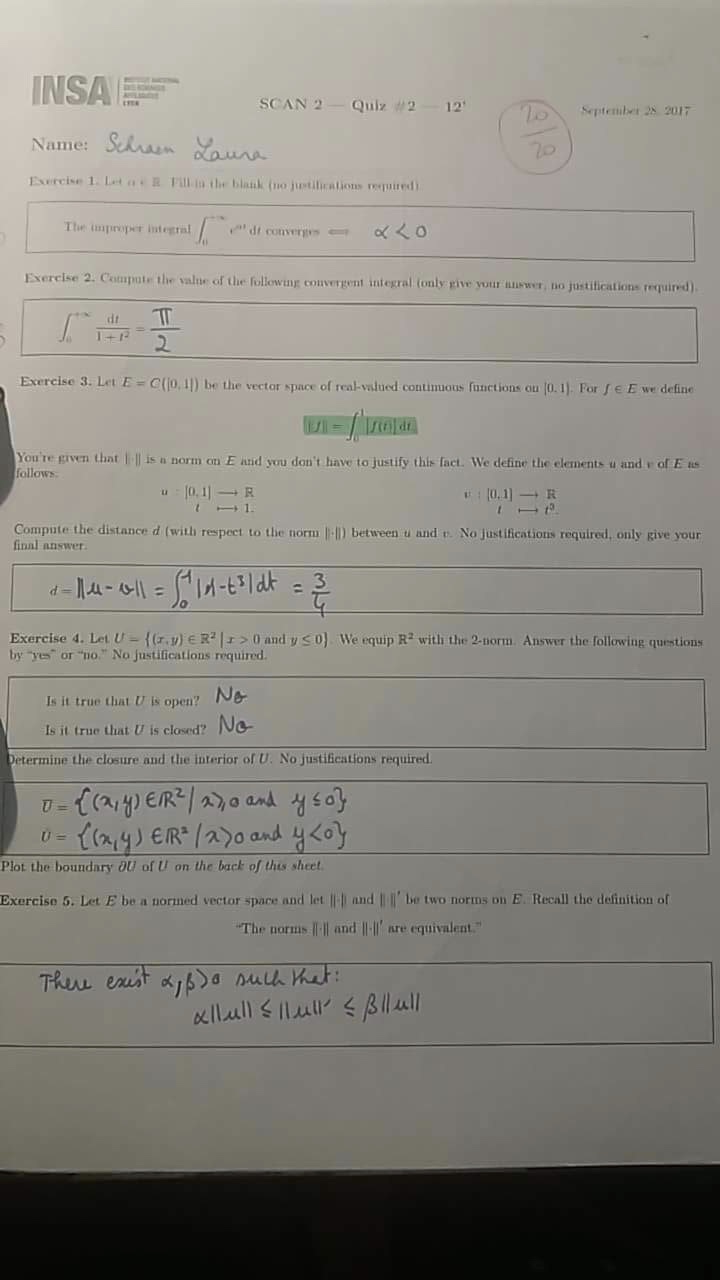 INSA
INSTITUT NATIONAL
DES SCIENCES
APPLIQUÉES
LYON
SCAN 2 — Quiz #2 — 12'
20
20
September 28, 2017
Name: Schraen Laura
Exercise 1. Let α ∈ ℝ. Fill in the blank (no justifications required).
The improper integral ∫₀^{+∞} e^{αt} dt converges ⟺ α < 0
Exercise 2. Compute the value of the following convergent integral (only give your answer, no justifications required).
∫₀^{+∞} dt/(1 + t²) = π/2
Exercise 3. Let E = C([0, 1]) be the vector space of real-valued continuous functions on [0, 1]. For f ∈ E we define
‖f‖ = ∫₀¹ |f(t)| dt.
You're given that ‖·‖ is a norm on E and you don't have to justify this fact. We define the elements u and v of E as
follows:
u : [0, 1] ⟶ ℝ v : [0, 1] ⟶ ℝ
t ⟼ 1. t ⟼ t³.
Compute the distance d (with respect to the norm ‖·‖) between u and v. No justifications required, only give your
final answer.
d = ‖u - v‖ = ∫₀¹ |1 - t³| dt = 3/4
Exercise 4. Let U = {(x, y) ∈ ℝ² | x > 0 and y ≤ 0}. We equip ℝ² with the 2-norm. Answer the following questions
by “yes” or “no.” No justifications required.
Is it true that U is open? No
Is it true that U is closed? No
Determine the closure and the interior of U. No justifications required.
U̅ = {(x, y) ∈ ℝ² / x ≥ 0 and y ≤ 0}
Ů = {(x, y) ∈ ℝ² / x > 0 and y < 0}
Plot the boundary ∂U of U on the back of this sheet.
Exercise 5. Let E be a normed vector space and let ‖·‖ and ‖·‖' be two norms on E. Recall the definition of
“The norms ‖·‖ and ‖·‖' are equivalent.”
There exist α, β > 0 such that:
α‖u‖ ≤ ‖u‖' ≤ β‖u‖